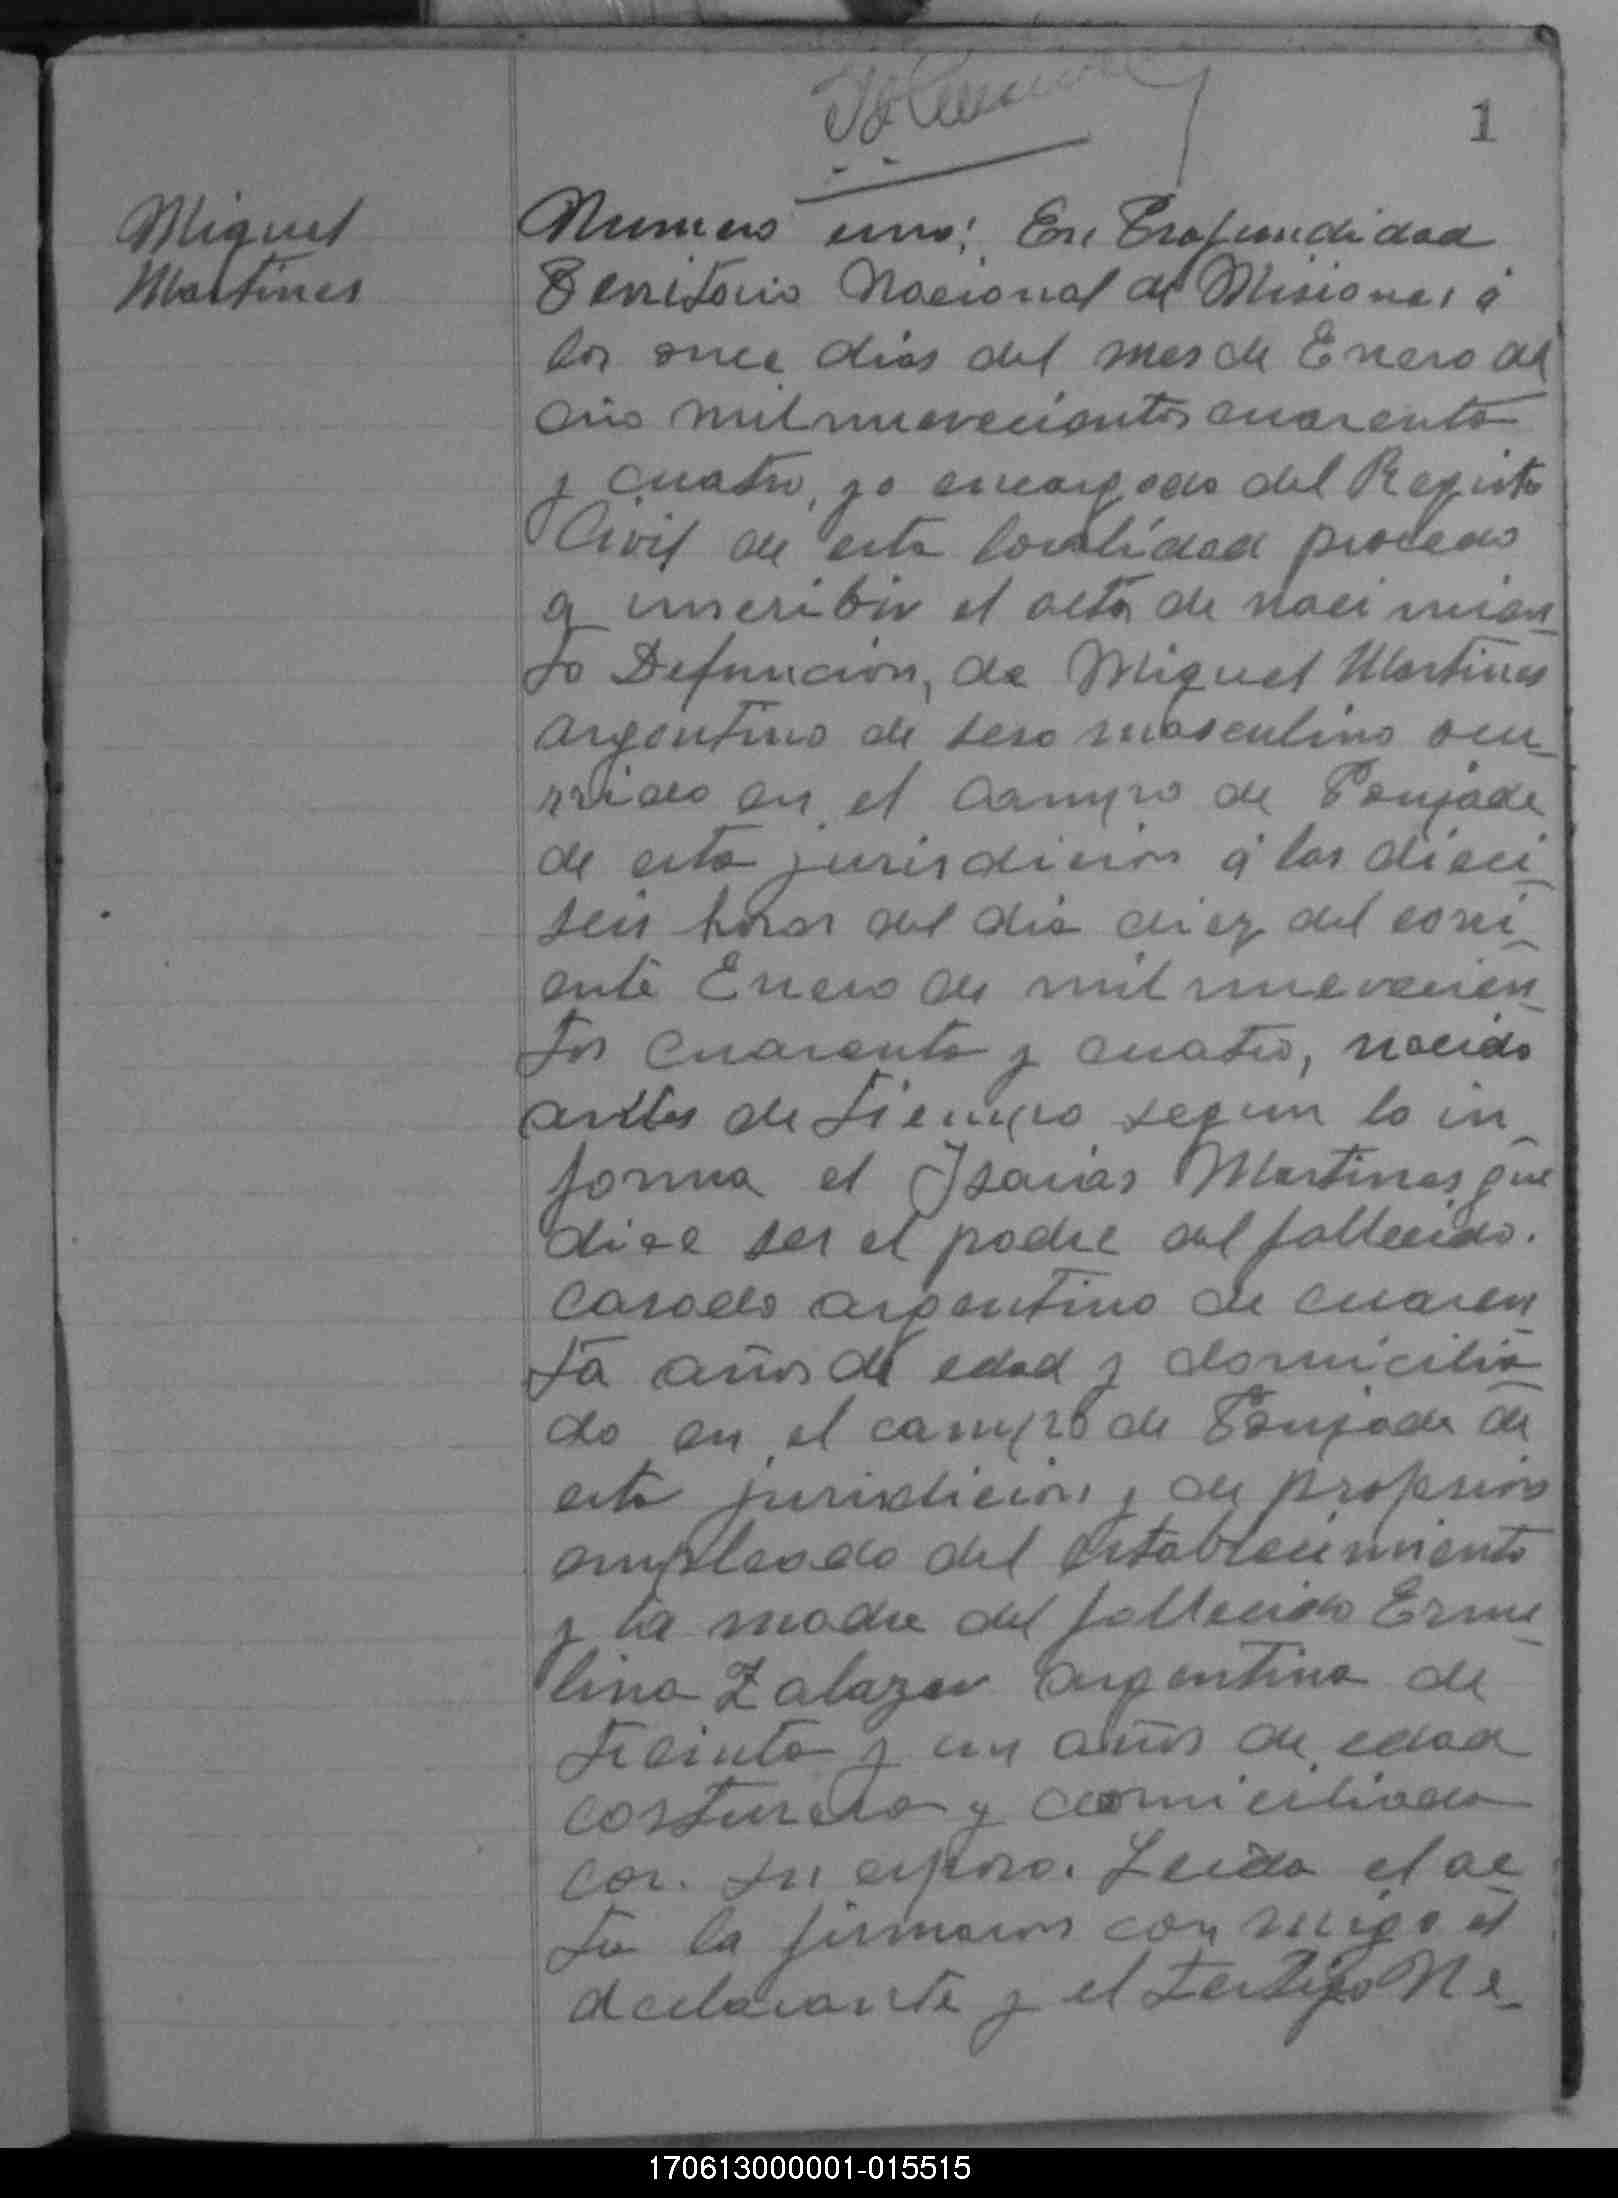 1
Miguel
Martines
Numero uno: En Profundidad
Territorio Nacional de Misiones á
los once dias del mes de Enero del
año mil nuevecientos cuarenta
y cuatro, yo encargado del Registro
Civil de esta localidad procedo
a inscribir el acta de nacimien_
to Defuncion, de Miguel Martines
argentino de sexo masculino ocu_
rrido en el campo de Poujade
de esta jurisdicion á las dieci_
seis horas del dia diez del corri_
ente Enero de mil nuevecien_
tos cuarenta y cuatro, nacido
antes de tiempo segun lo in_
forma el Isaias Martines que
dice ser el padre del fallecido.
Casado argentino de cuaren_
ta años de edad y domicilia_
do en el campo de Poujade de
esta jurisdicion y de profesion
empleado del establecimiento
y la madre del fallecido Erme_
lina Zalazar argentina de
treinta y un años de edad
costurera y domiciliada
con su esposo. Leida el ac_
ta la firmaron con migo el
declarante y el testigo Ne_
170613000001-015515